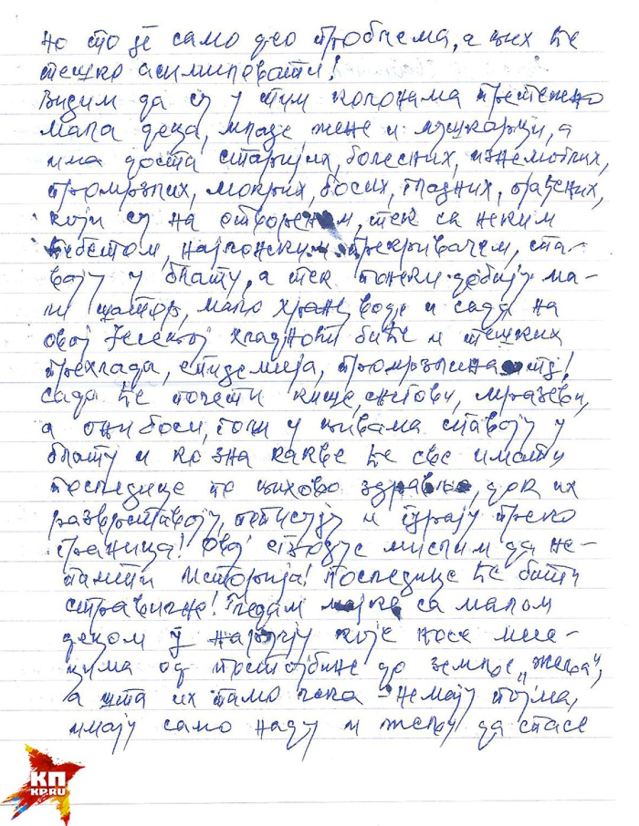 Но сто је само део проблема, а њих ће
тешко асимиловати!
Видим да су у тим колонама претежно
мала деца, младе жене и мушкарци, а
има доста старијих, болесних, изнемоглих,
промрзлих, мокрих, босих, гладних, рањених,
који су на отвореном, тек са неким
ћебетом, најлонским прекривачем, спа-
вају у блату, а тек понеки добију ма-
ли шатор, мало хране, воде и сада на
овој јесењој хладноћи биће и тешких
прехлада, епидемија, промрзлина итд!
Сада ће почети кише, снегови, мразеви,
а они боси, голи у њивама спавају у
блату и ко зна какве ће све имати
последице по њихово здравље, док их
разврставају, пописују и гурају преко
граница! Овај егзодус мислим да не-
памти историја! Последице ће бити
стравичне! Гледам мајке са малом
децом у наручју које носе месе-
цима од постојбине до земље „жеља",
а шта их тамо чека - немају појма,
имају само наду и жељу да спасе
КП
KP.RU